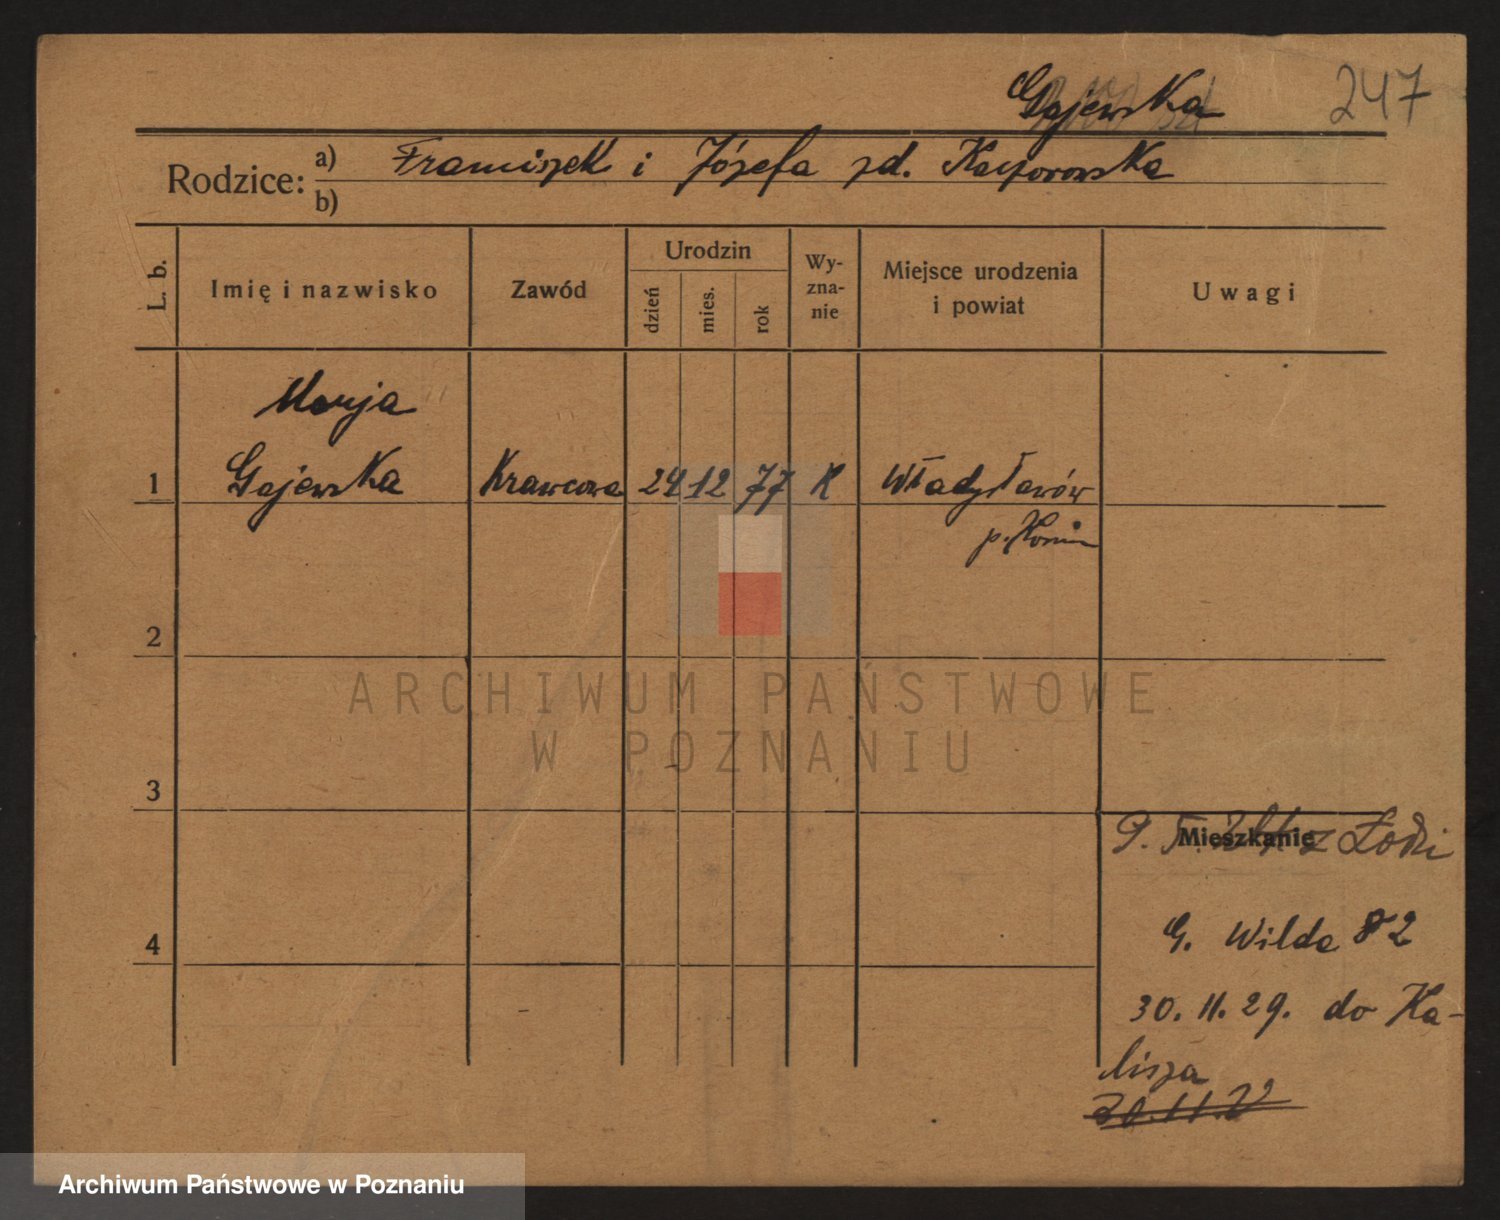 Gajewska 247
Rodzice: a) Franciszek i Józefa zd. Kaczorowska
b)
L. b. Imię i nazwisko Zawód Urodzin dzień mies. rok Wyznanie Miejsce urodzenia i powiat Uwagi
Marja
1 Gajewska Krawcowa 24 12 77 K Władysławów
p. Konin
2
ARCHIWUM PAŃSTWOWE
W POZNANIU
3
Mieszkanie
z Łodzi
4 G. Wilda 82
30. 11. 29. do Ka-
lisza
30.11.
Archiwum Państwowe w Poznaniu